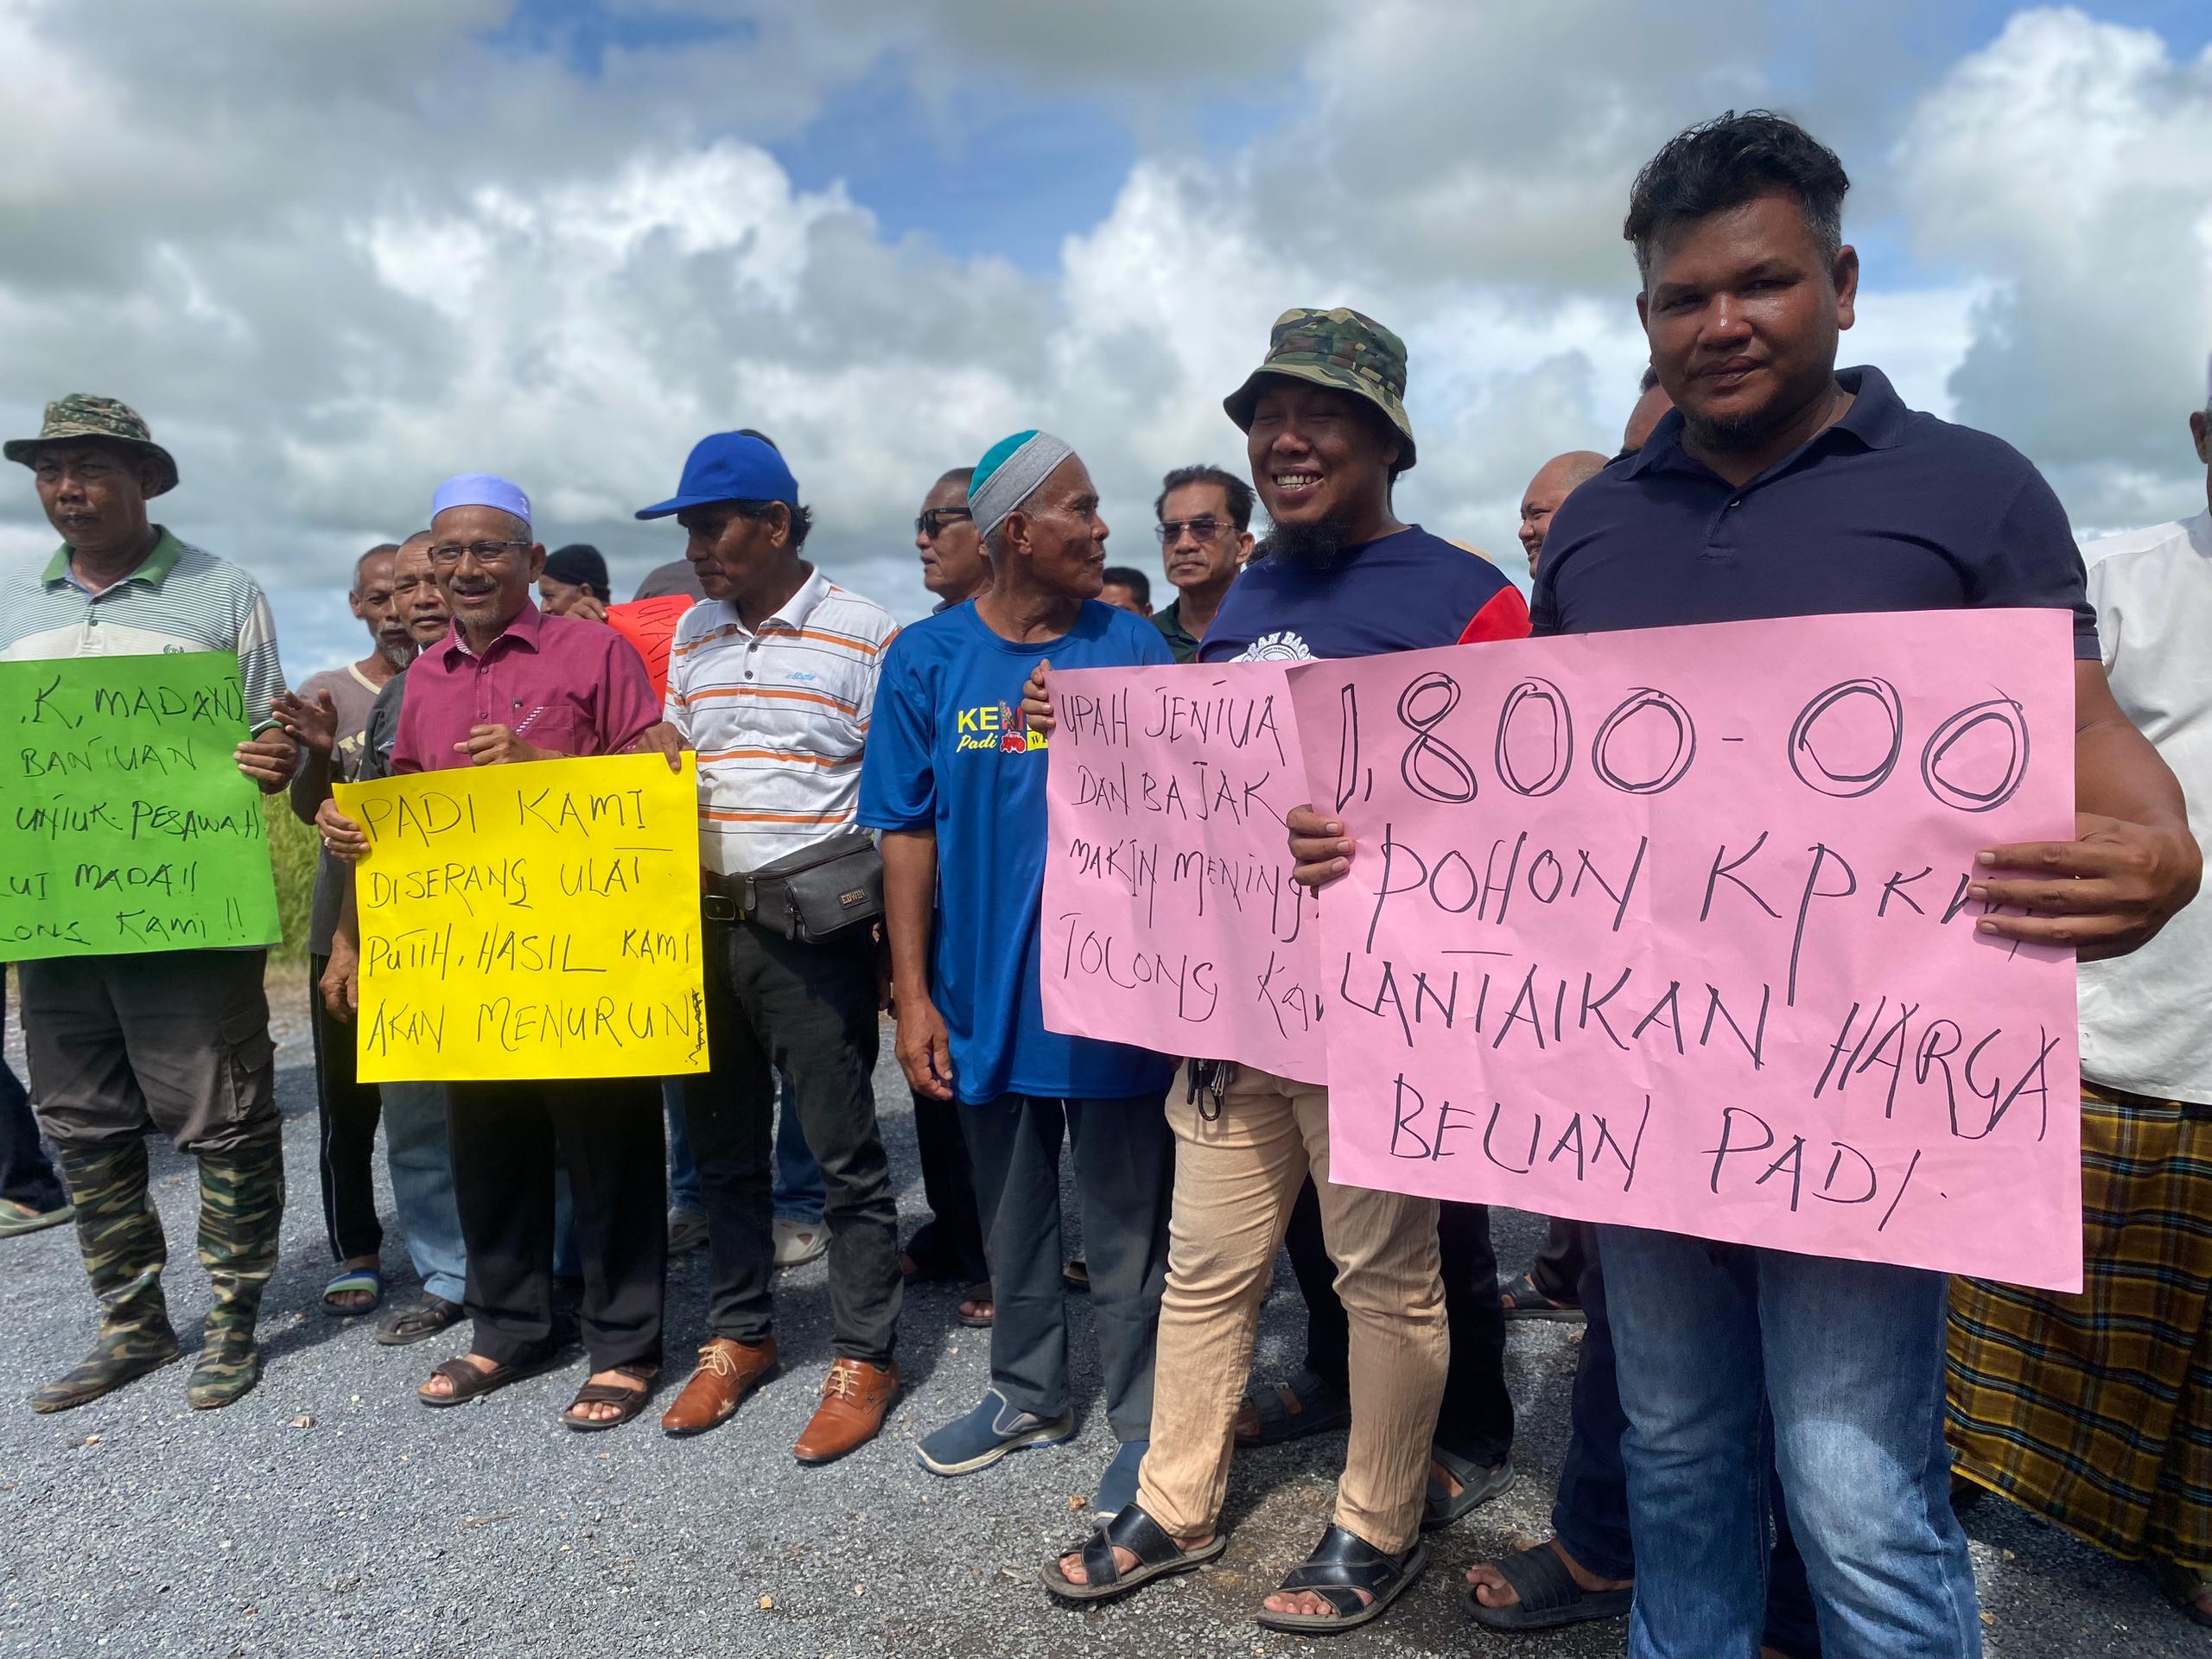 .K, MADANI
BANTUAN
UNTUK PESAWAH
UI MADA!!
LONG KAMI !!
PADI KAMI
DISERANG ULAT
PUTIH. HASIL KAMI
AKAN MENURUN
KE
Padi
EDWIN
UPAH JENTUA
DAN BAJAK
MAKIN MENING
TOLONG KA
1,800-00
POHON KPKM
LANTAIKAN HARGA
BELIAN PADI.